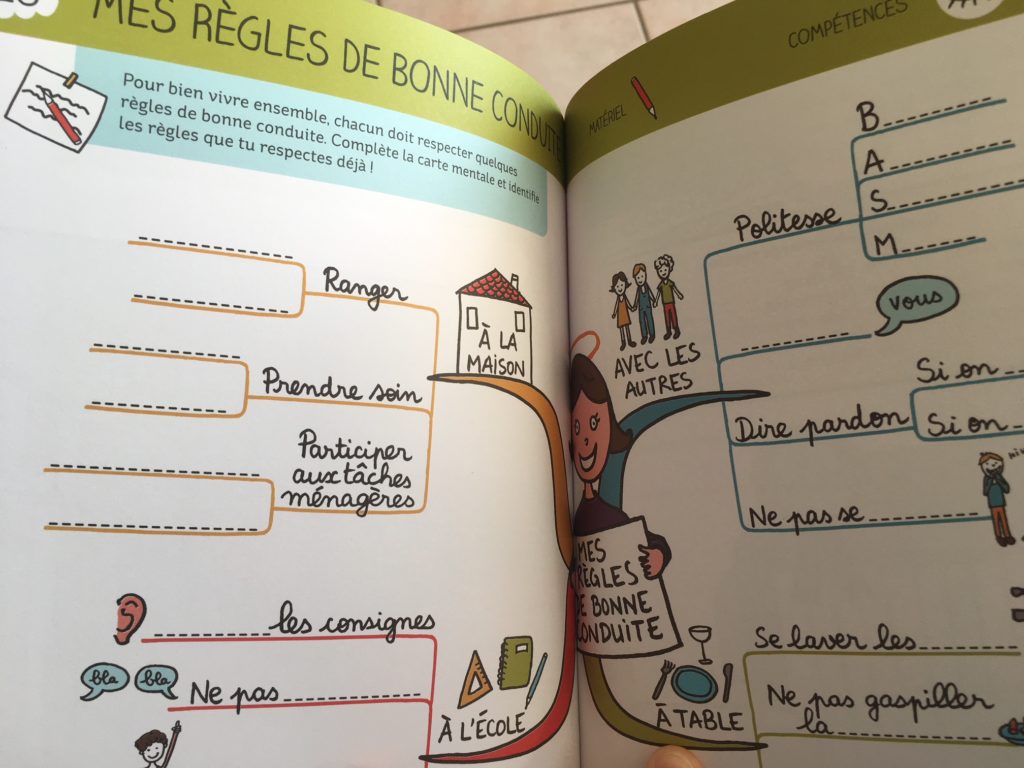 MES RÈGLES DE BONNE CONDUITE
Pour bien vivre ensemble, chacun doit respecter quelques
règles de bonne conduite. Complète la carte mentale et identifie
les règles que tu respectes déjà !
Ranger
Prendre soin
Participer
aux tâches
ménagères
À LA
MAISON
les consignes
bla
bla
Ne pas
À L'ÉCOLE
MATÉRIEL
COMPÉTENCES
B
A
S
M
Politesse
vous
AVEC LES
AUTRES
Si on
Dire pardon
Si on
Ne pas se
MES
RÈGLES
DE BONNE
CONDUITE
Se laver les
Ne pas gaspiller
la
À TABLE